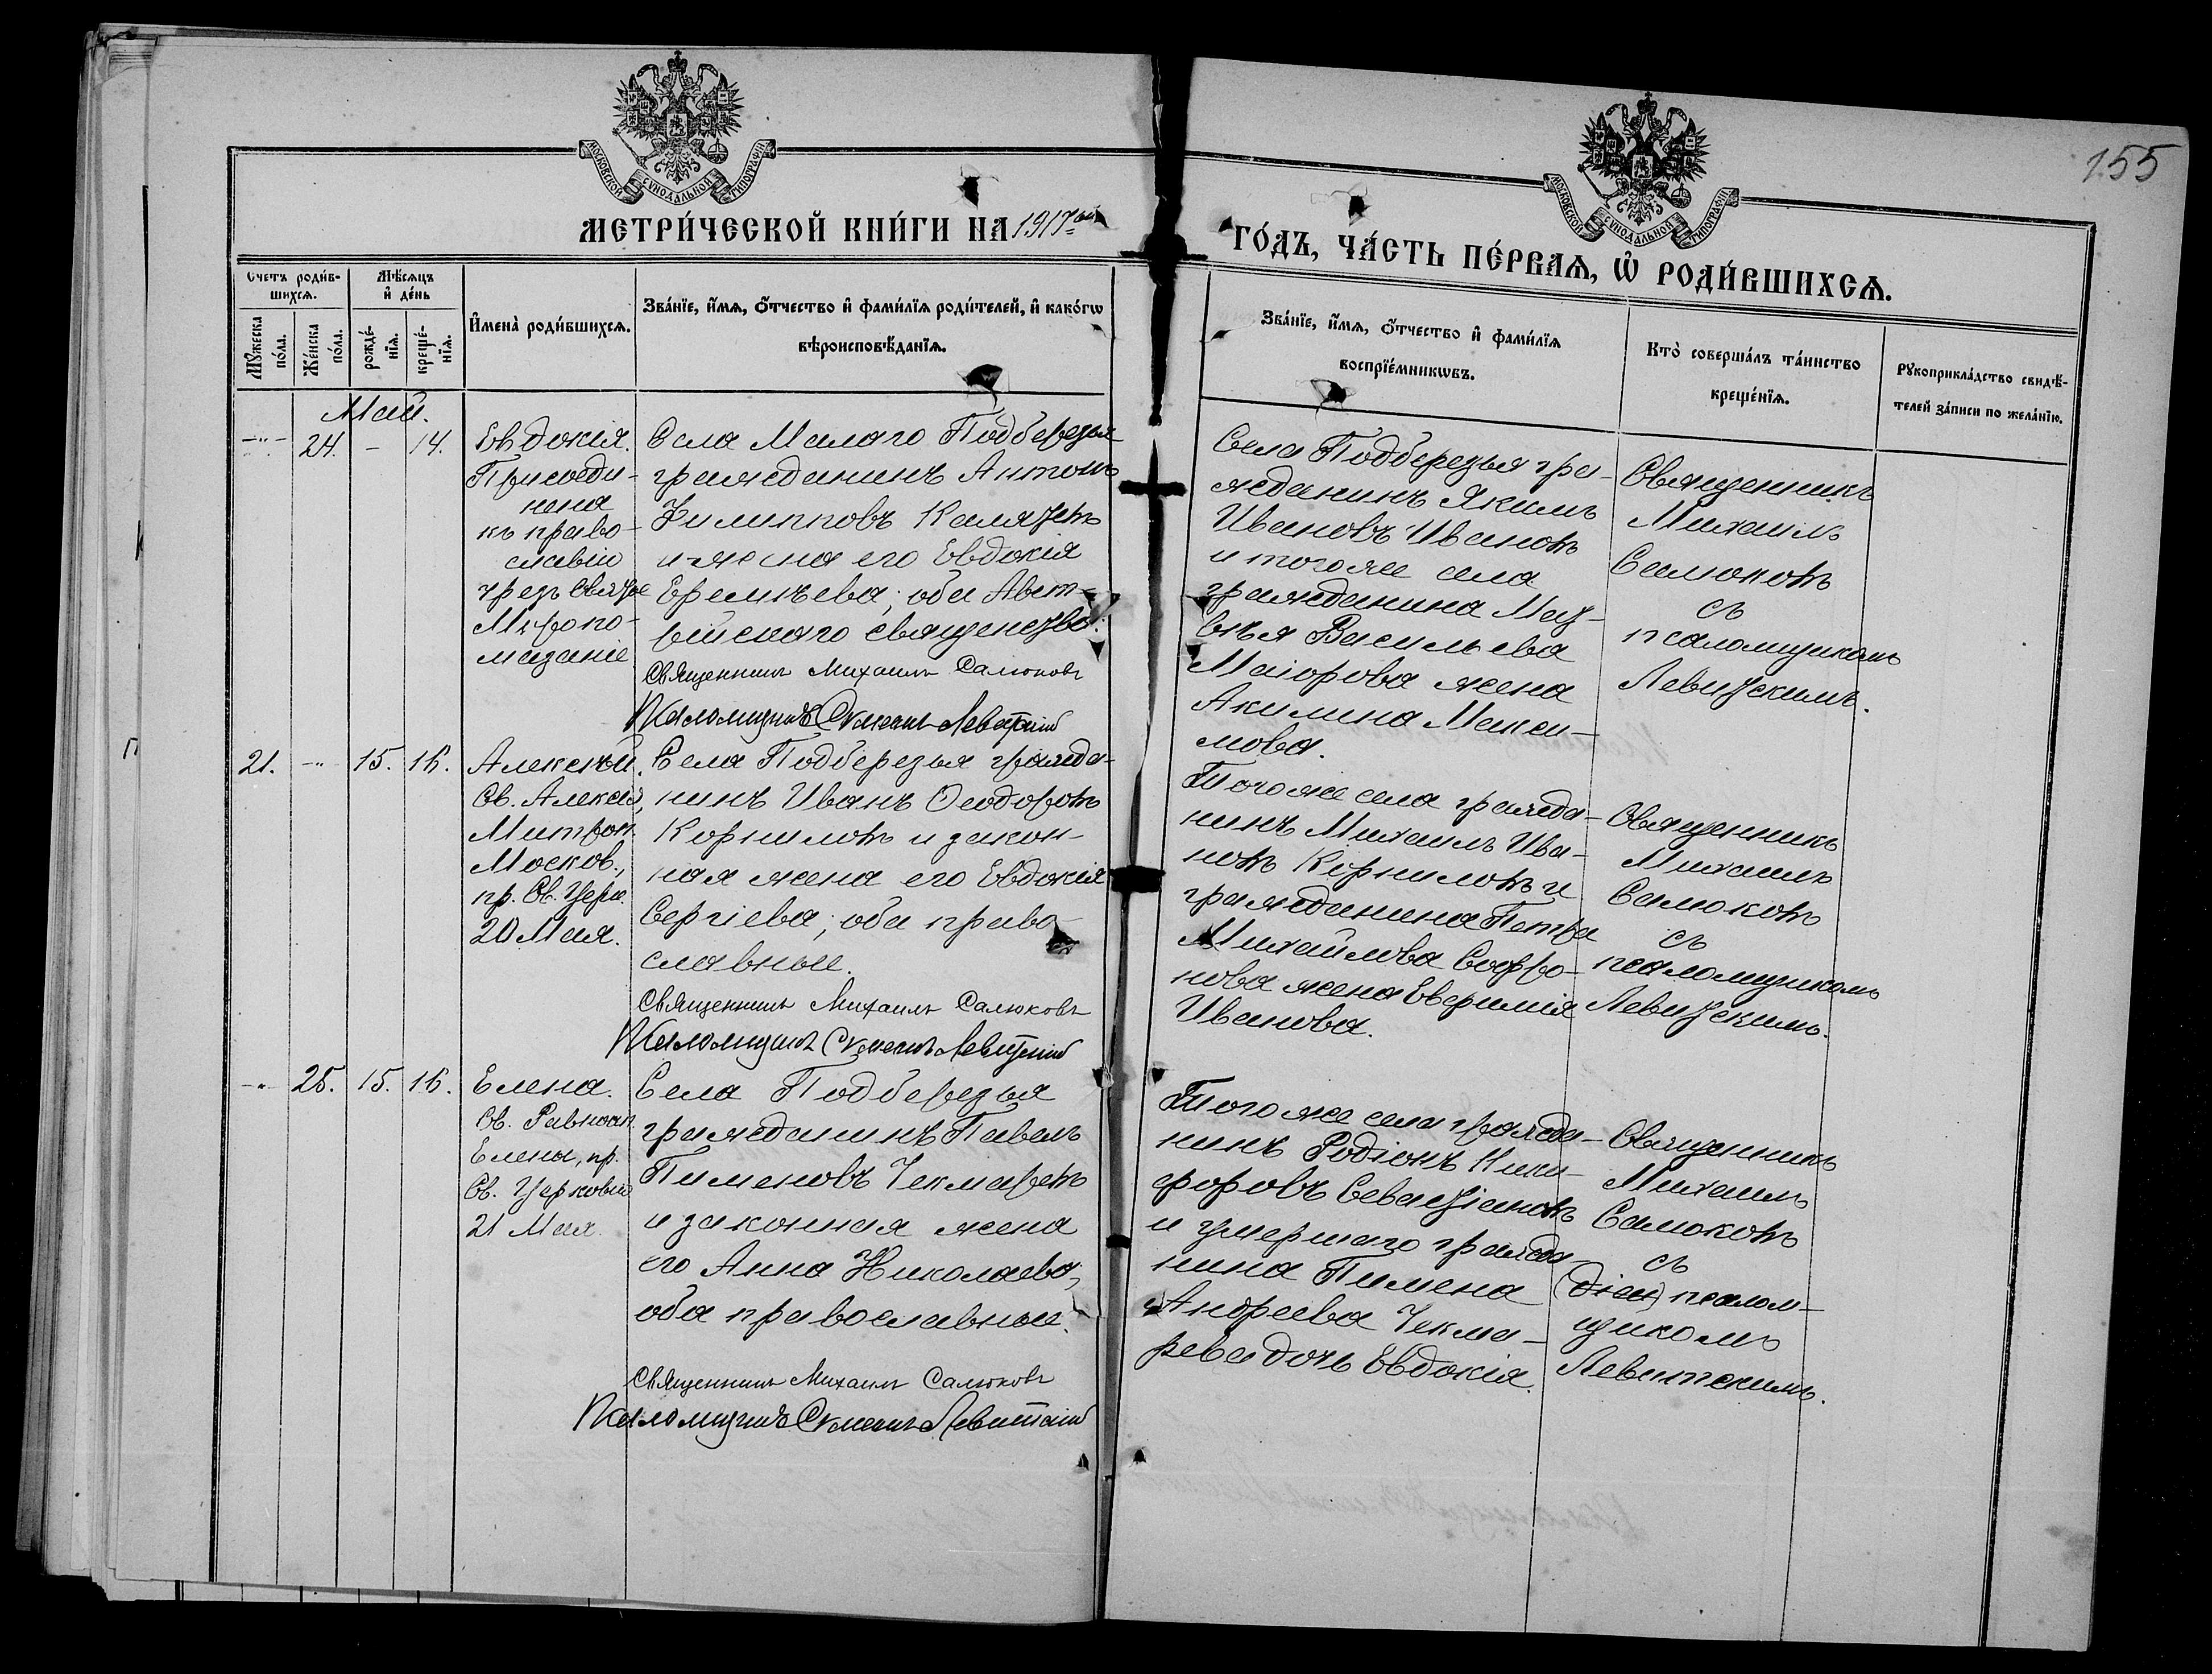 155
МОСКОВСКОЙ СѴНОДАЛЬНОЙ ТИПОГРАФІИ
МОСКОВСКОЙ СѴНОДАЛЬНОЙ ТИПОГРАФІИ
МЕТРИ́ЧЕСКОЙ КНИ́ГИ НА 1917ый
ГО́ДЪ, ЧА́СТЬ ПЕ́РВАѦ, Ѡ҆ РОДИ́ВШИХСѦ.
Счетъ роди́в-
шихсѧ.
Мꙋ́жеска
по́ла.
Же́нска
по́ла.
Мѣ́сѧцъ
и҆ де́нь
рожде́-
нїѧ.
креще́-
нїѧ.
И҆мена̀ роди́вшихсѧ.
Зва́нїе, и҆́мѧ, ѻ҆́тчество и҆ фами́лїѧ роди́телей, и҆ како́гѡ
вѣроисповѣ́данїѧ.
Зва́нїе, и҆́мѧ, ѻ҆́тчество и҆ фами́лїѧ
воспрїе́мникѡвъ.
Кто̀ соверша́лъ та́инство
креще́нїѧ.
Рꙋкоприкла́дство свидѣ́-
телей за́писи по жела́нїю.
Май.
-"- 24. - 14.
Евдокія.
Присоеди-
нена
къ право-
славію
чрезъ святое
Мѵропо-
мазаніе
Села Малаго Подберезья
гражданинъ Антонъ
Филипповъ
и жена его Евдокія
Еремѣева; оба Авст-
рійскаго священства.
Священникъ Михаилъ Салюковъ
Псаломщикъ Левитскій
Села Подберезья гра-
жданинъ Якимъ
Ивановъ Ивановъ
и тогоже села
гражданина Мат-
вѣя Васильева
Маіорова жена
Акилина Макси-
мова.
Священникъ
Михаилъ
Салюковъ
съ
псаломщикомъ
Левитскимъ.
21. -"- 15. 16.
Алексѣй.
Св. Алексія,
Митроп.
Москов.,
пр. Св. Церк.
20 Мая.
Села Подберезья гражда-
нинъ Иванъ Ѳеодоровъ
Корниловъ и закон-
ная жена его Евдокія
Сергіева; оба право-
славные.
Священникъ Михаилъ Салюковъ
Псаломщикъ Левитскій
Тогоже села гражда-
нинъ Михаилъ Ива-
новъ Корниловъ и
гражданина Петра
Михайлова Софро-
нова жена Евфимія
Иванова.
Священникъ
Михаилъ
Салюковъ
съ
псаломщикомъ
Левитскимъ.
-"- 25. 15. 16.
Елена.
Св. Равноап.
Елены, пр.
Св. Церковію
21 Мая.
Села Подберезья
гражданинъ Павелъ
Пименовъ Чекмаревъ
и законная жена
его Анна Николаева;
оба православные.
Священникъ Михаилъ Салюковъ
Псаломщикъ Левитскій
Тогоже села гражда-
нинъ Родіонъ Ники-
форовъ Севастіановъ
и умершаго гражда-
нина Пимена
Андреева Чекма-
рева дочь Евдокія.
Священникъ
Михаилъ
Салюковъ
съ
(діак) псалом-
щикомъ
Левитскимъ.